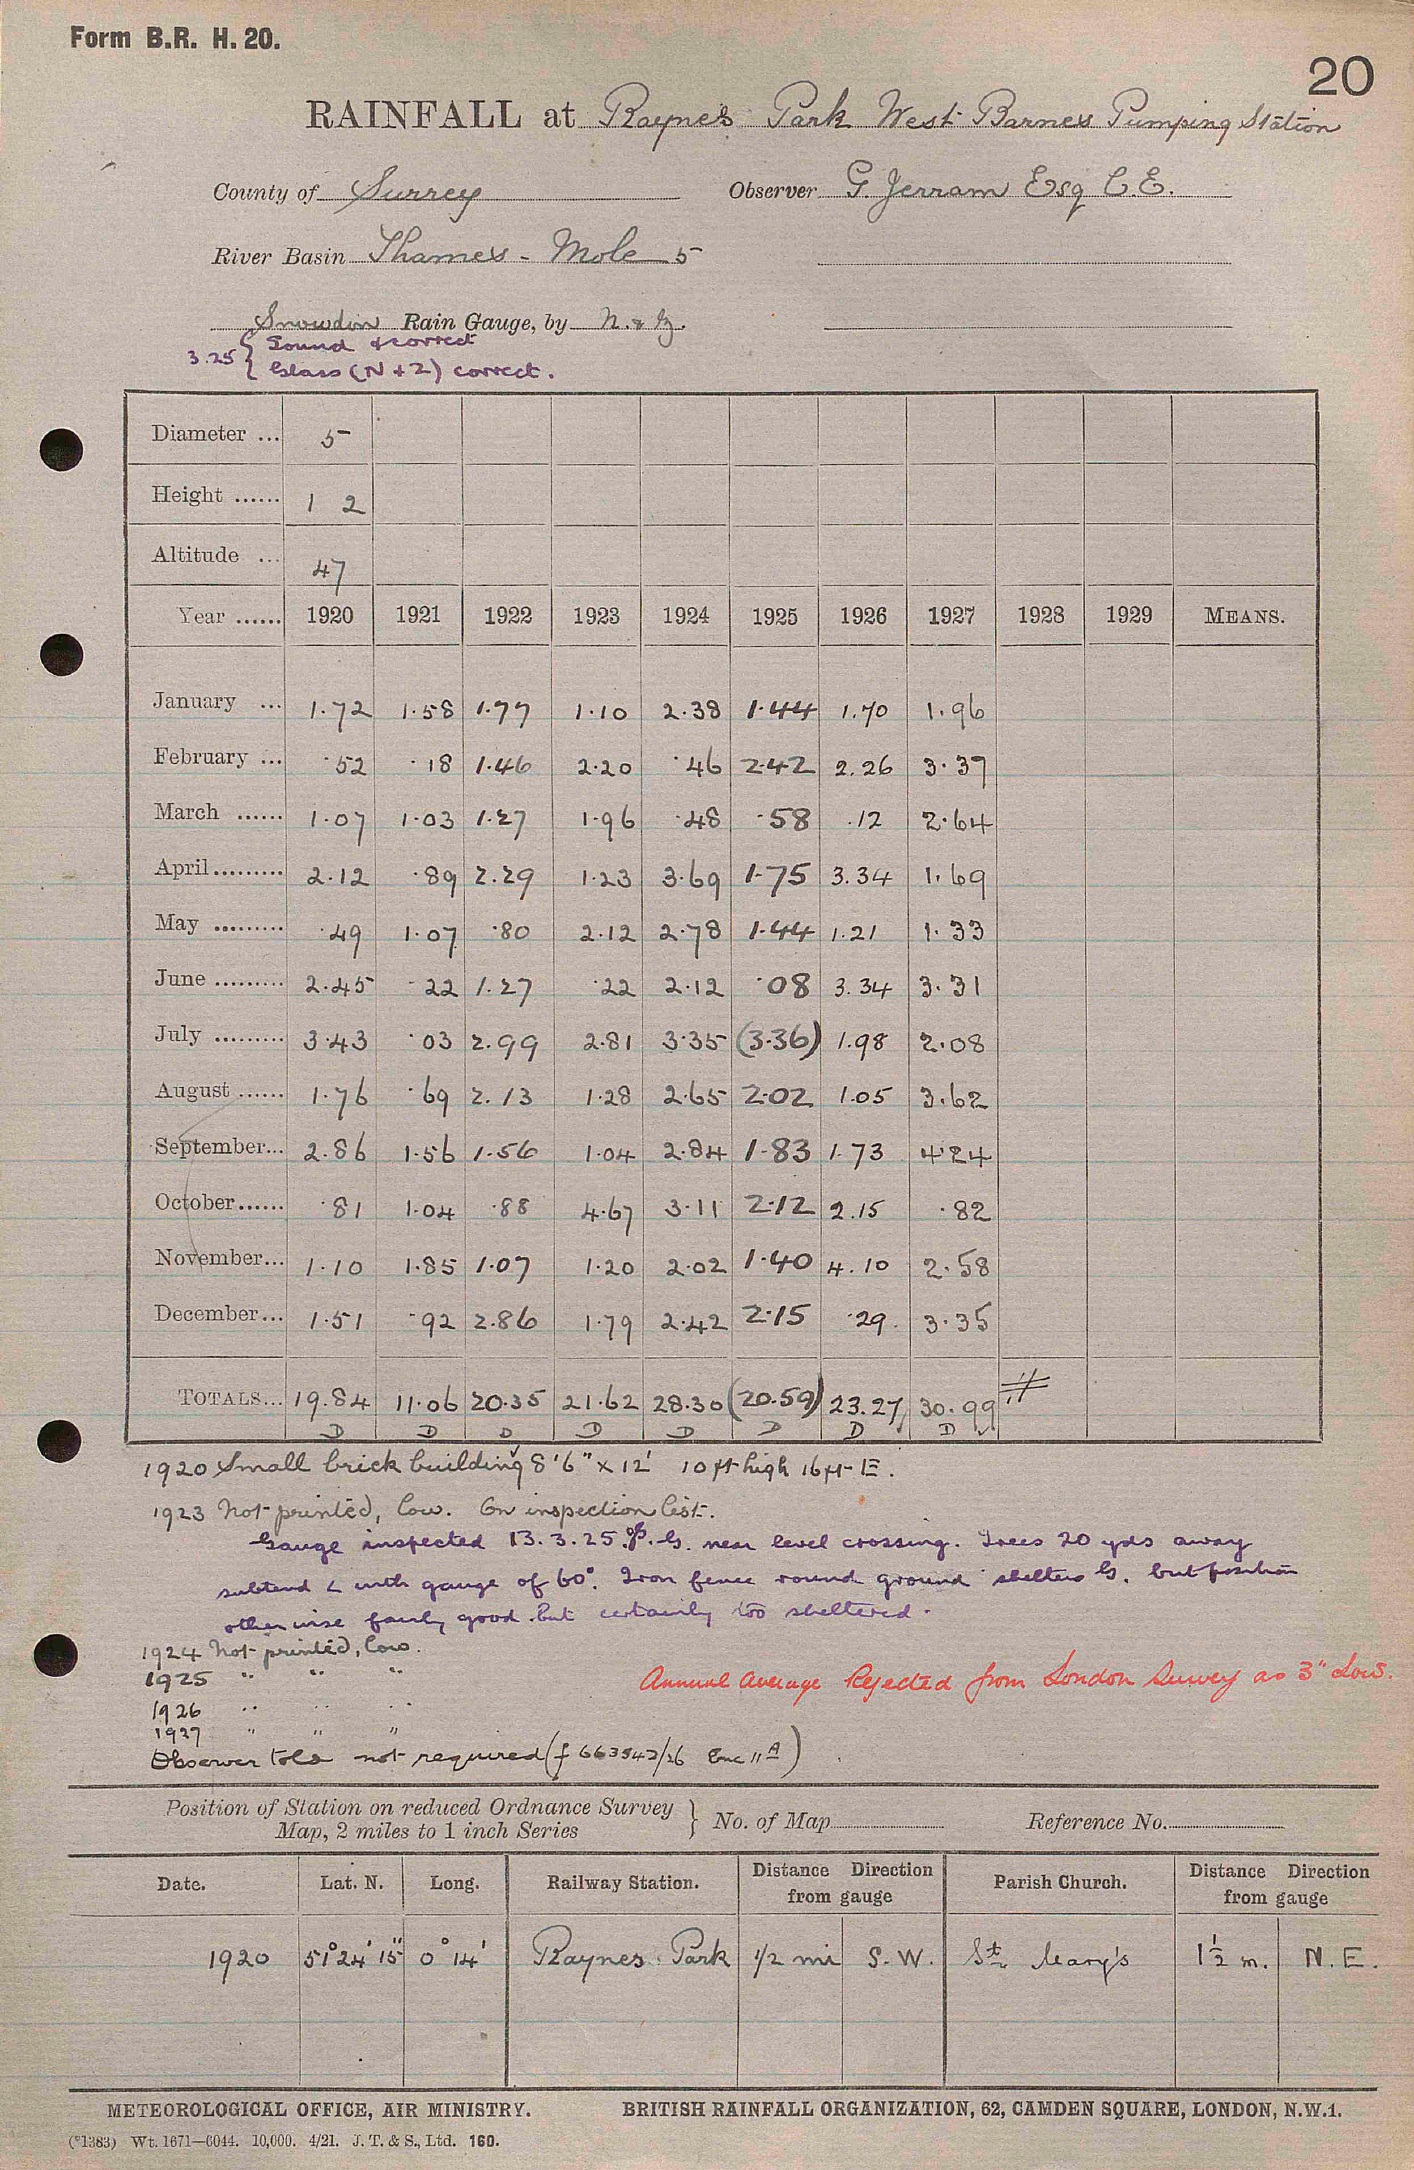 Form B.R. H. 20.
20
RAINFALL at Raynes Park West Barnes Pumping Station
County of Surrey Observer G. Jerram Esq C.E.
River Basin Thames - Mole 5
Snowdon Rain Gauge, by N. & Z.
3.25 { Sound & correct
Glass (N + Z) correct.
Diameter ... 5
Height ...... 1 2
Altitude ... 47
Year ...... 1920 1921 1922 1923 1924 1925 1926 1927 1928 1929 MEANS.
January ... 1.72 1.58 1.77 1.10 2.38 1.44 1.70 1.96
February ... .52 .18 1.46 2.20 .46 2.42 2.26 3.37
March ...... 1.07 1.03 1.27 1.96 .48 .58 .12 2.64
April ......... 2.12 .89 2.29 1.23 3.69 1.75 3.34 1.69
May ......... .49 1.07 .80 2.12 2.78 1.44 1.21 1.33
June ......... 2.45 .22 1.27 .22 2.12 .08 3.34 3.31
July ......... 3.43 .03 2.99 2.81 3.35 (3.36) 1.98 2.08
August ...... 1.76 .69 2.13 1.28 2.65 2.02 1.05 3.62
September... 2.86 1.56 1.56 1.04 2.84 1.83 1.73 4.24
October...... .81 1.04 .88 4.67 3.11 2.12 2.15 .82
November... 1.10 1.85 1.07 1.20 2.02 1.40 4.10 2.58
December... 1.51 .92 2.86 1.79 2.42 2.15 .29 3.35
TOTALS... 19.84 11.06 20.35 21.62 28.30 (20.59) 23.27 30.99
D D D D D D D D
1920 Small brick building 8'6" x 12' 10 ft high 16 ft E.
1923 Not printed, low. On inspection list.
Gauge inspected 13.3.25. G. near level crossing. Trees 20 yds away
subtend < with gauge of 60°. Iron fence round ground shelters G. but position
otherwise fairly good but certainly too sheltered.
1924 Not printed, low.
1925 " " "
Annual Average Rejected from London Survey as 3" Low.
1926 " " "
1927 " " "
Observer told not required (f 663542/26 Enc 11A)
Position of Station on reduced Ordnance Survey
Map, 2 miles to 1 inch Series } No. of Map Reference No.
Date. Lat. N. Long. Railway Station. Distance Direction from gauge Parish Church. Distance Direction from gauge
1920 51°24'15" 0°14' Raynes Park 1/2 mi S.W. St Mary's 1 1/2 m. N.E.
METEOROLOGICAL OFFICE, AIR MINISTRY. BRITISH RAINFALL ORGANIZATION, 62, CAMDEN SQUARE, LONDON, N.W.1.
(*1383) Wt. 1671—6044. 10,000. 4/21. J. T. & S., Ltd. 160.